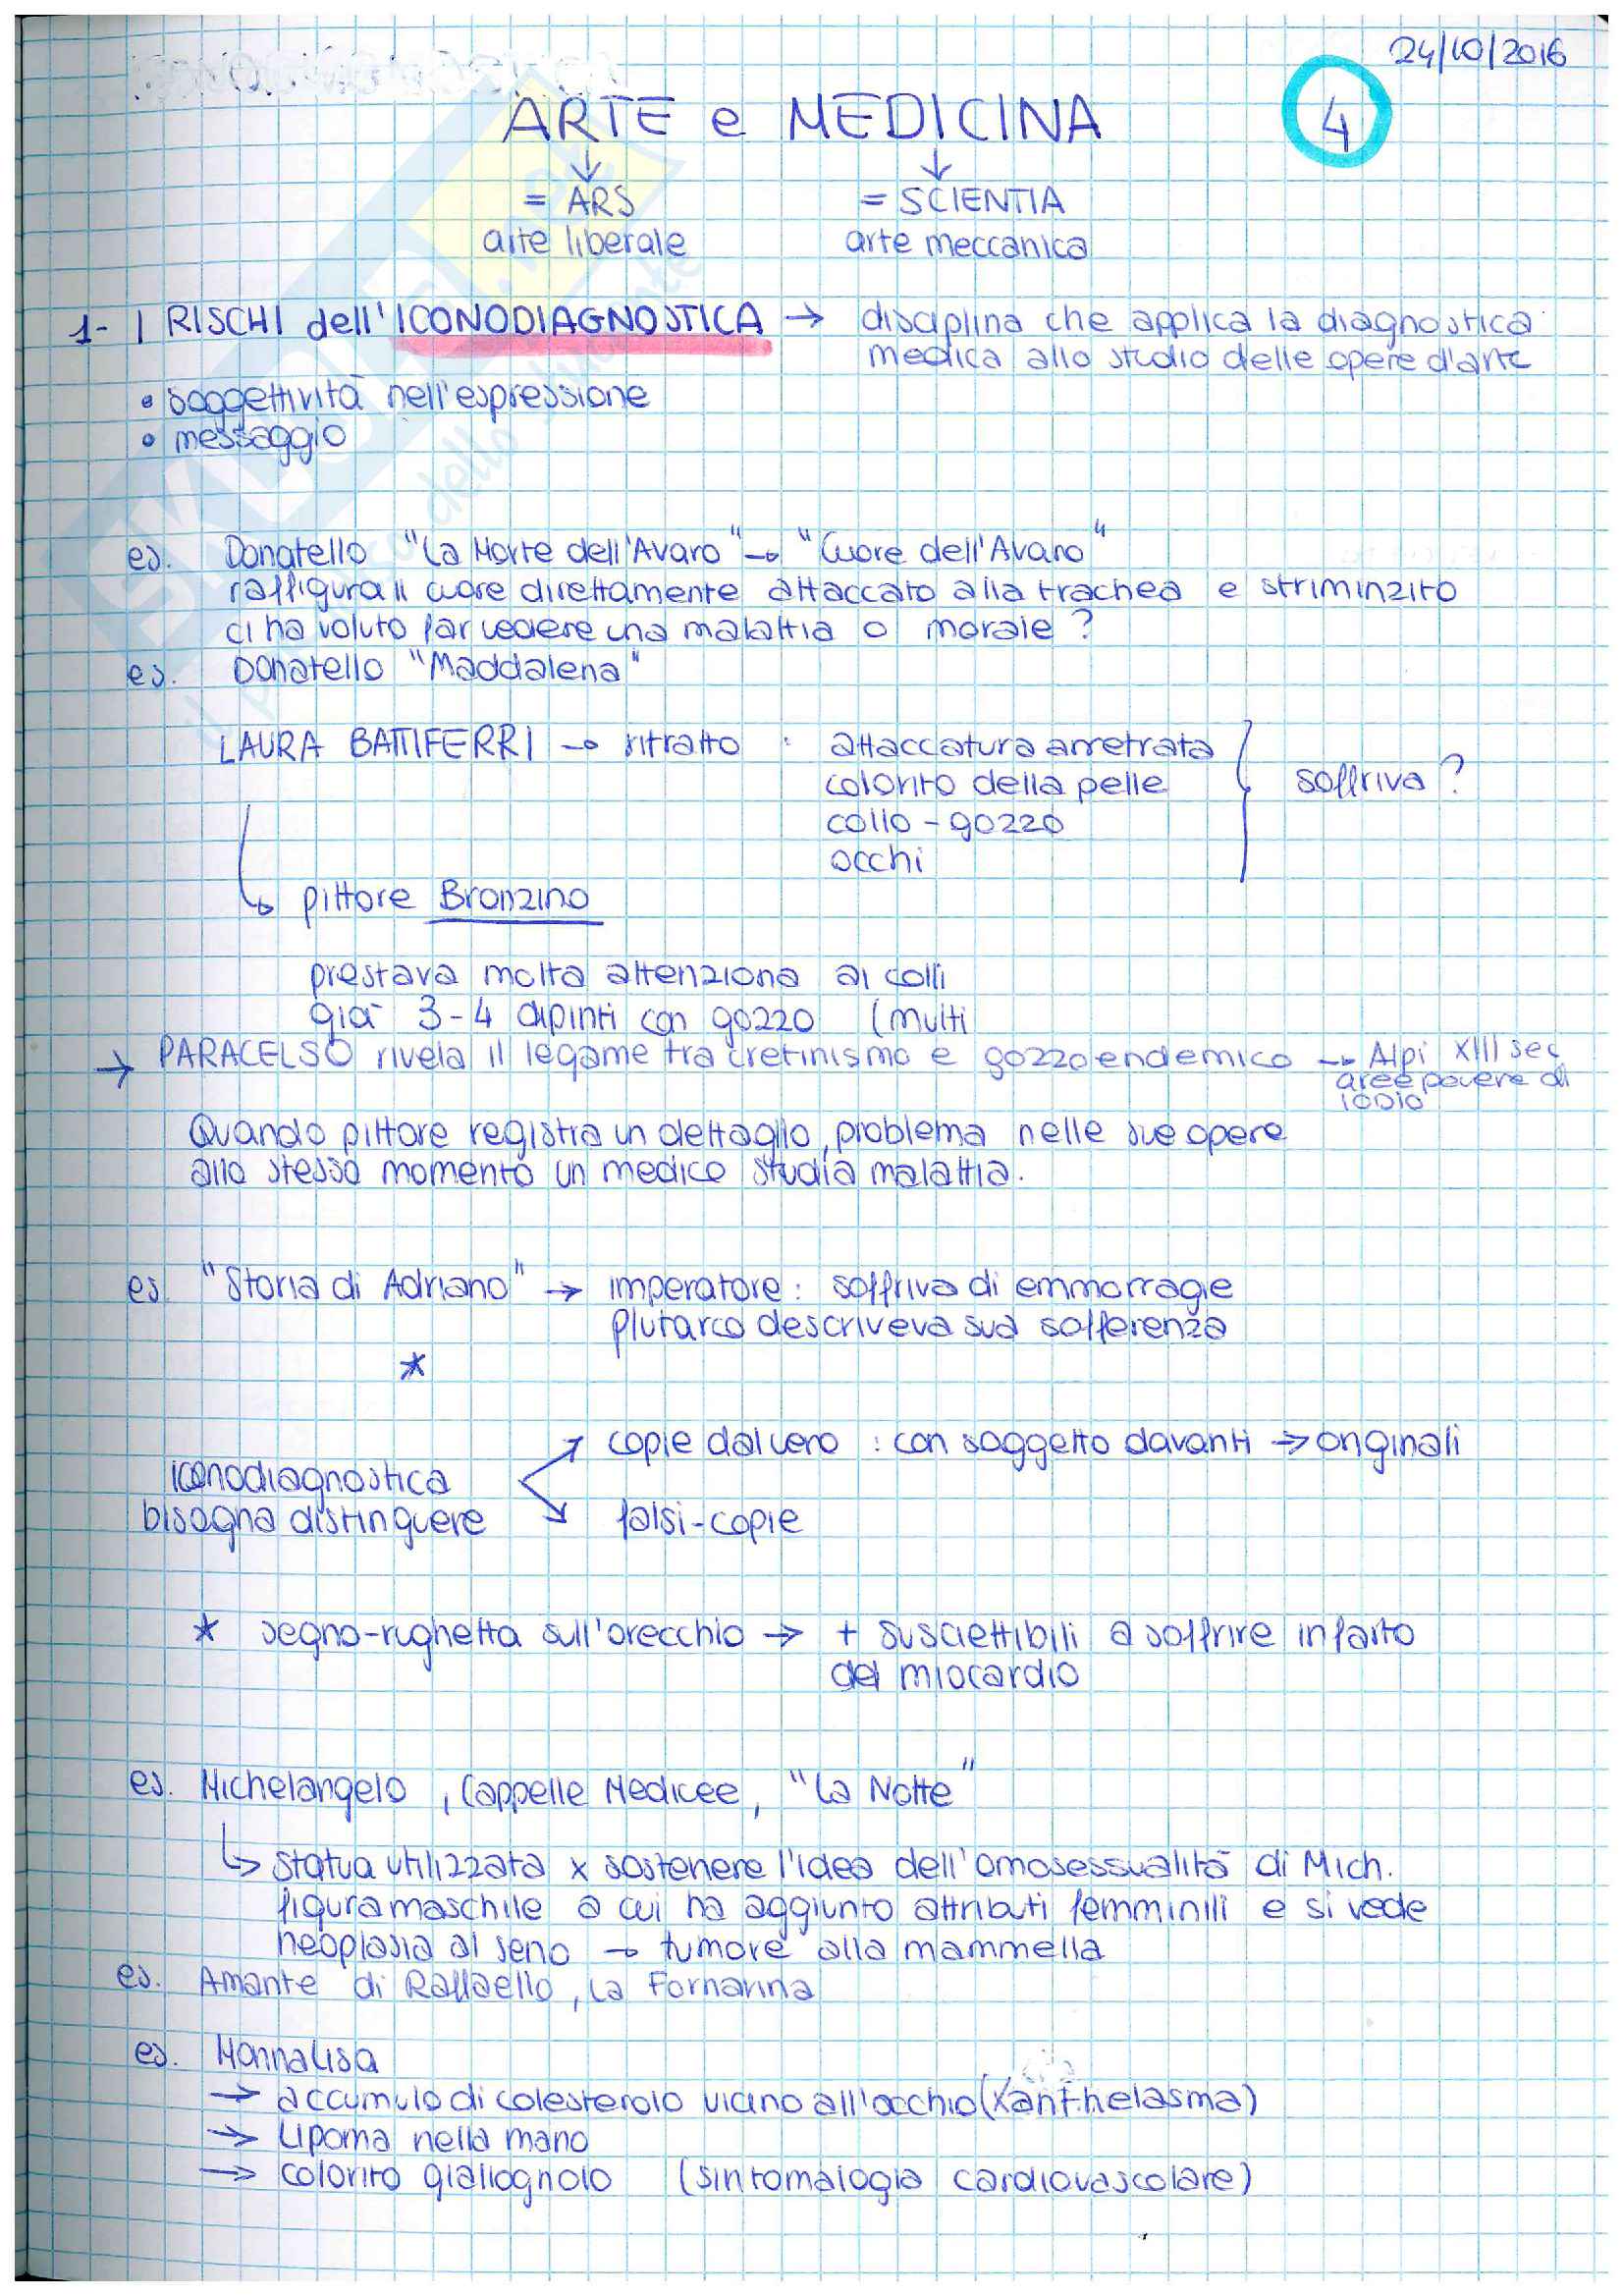 24/10/2016
ARTE e MEDICINA
4
↓ ↓
= ARS = SCIENTIA
arte liberale arte meccanica
1- I RISCHI dell'ICONODIAGNOSTICA → disciplina che applica la diagnostica
medica allo studio delle opere d'arte
• soggettività nell'espressione
• messaggio
es. Donatello "La Morte dell'Avaro" → "Cuore dell'Avaro"
raffigura il cuore direttamente attaccato alla trachea e striminzito
ci ha voluto far vedere una malattia o morale ?
es. Donatello "Maddalena"
LAURA BATTIFERRI → ritratto : attaccatura arretrata
colorito della pelle
soffriva ?
collo - gozzo
occhi
↳ pittore Bronzino
prestava molta attenziona ai colli
già 3-4 dipinti con gozzo (multi
→ PARACELSO rivela il legame tra cretinismo e gozzo endemico → Alpi XIII sec
aree povere di
iodio
Quando pittore registra un dettaglio, problema nelle sue opere
allo stesso momento un medico studia malattia.
es. "Storia di Adriano" → imperatore : soffriva di emmorragie
Plutarco descriveva sua sofferenza
*
copie dal vero : con soggetto davanti → originali
iconodiagnostica
bisogna distinguere falsi-copie
* segno-rughetta sull'orecchio → + suscettibili a soffrire infarto
del miocardio
es. Michelangelo, Cappelle Medicee, "La Notte"
↳ statua utilizzata x sostenere l'idea dell'omosessualità di Mich.
figura maschile a cui ha aggiunto attributi femminili e si vede
neoplasia al seno → tumore alla mammella
es. Amante di Raffaello, La Fornarina
es. Monnalisa
→ accumulo di colesterolo vicino all'occhio (Xanthelasma)
→ Lipoma nella mano
→ colorito giallognolo (sintomalogia cardiovascolare)